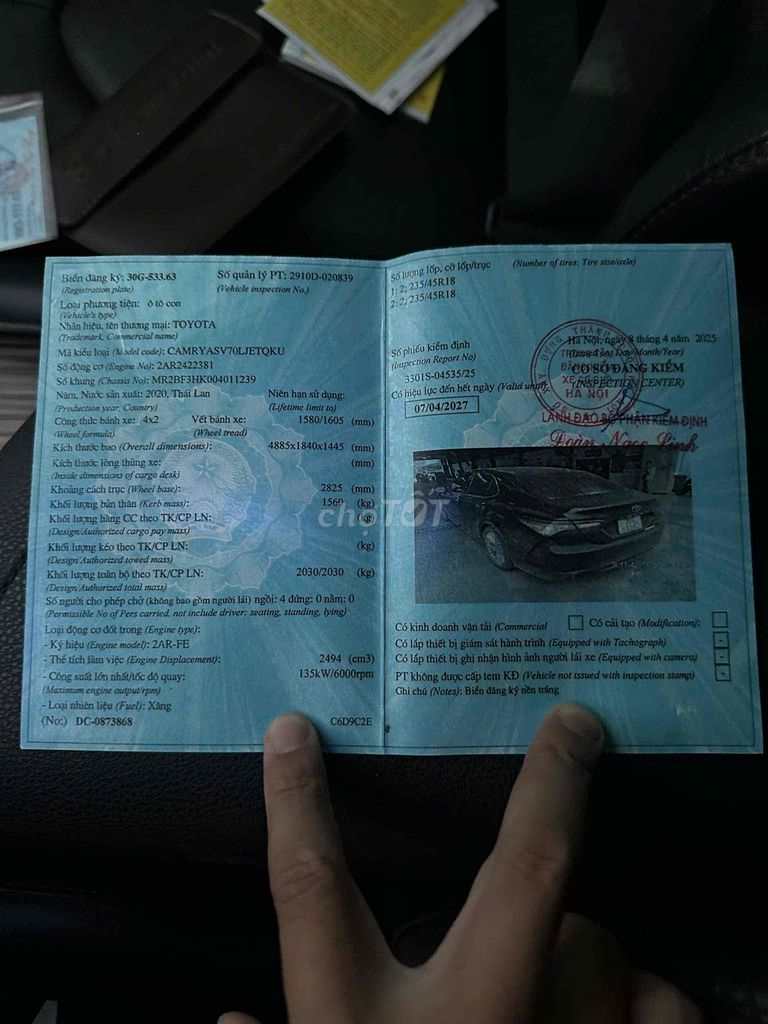 Biển đăng ký: 30G-533.63 Số quản lý PT: 2910D-020839
(Registration plate) (Vehicle inspection No.)
Loại phương tiện: ô tô con
(Vehicle's type)
Nhãn hiệu, tên thương mại: TOYOTA
(Trademark, Commercial name)
Mã kiểu loại (Model code): CAMRYASV70LJETQKU
Số động cơ (Engine No): 2AR2422381
Số khung (Chassis No): MR2BF3HK004011239
Năm, Nước sản xuất: 2020, Thái Lan Niên hạn sử dụng:
(Production year, Country) (Lifetime limit to)
Công thức bánh xe: 4x2 Vết bánh xe: 1580/1605 (mm)
(Wheel formula) (Wheel tread)
Kích thước bao (Overall dimensions): 4885x1840x1445 (mm)
Kích thước lòng thùng xe: (mm)
(Inside dimensions of cargo desk)
Khoảng cách trục (Wheel base): 2825 (mm)
Khối lượng bản thân (Kerb mass): 1560 (kg)
Khối lượng hàng CC theo TK/CP LN: (kg)
(Design/Authorized cargo pay mass)
Khối lượng kéo theo TK/CP LN: (kg)
(Design/Authorized towed mass)
Khối lượng toàn bộ theo TK/CP LN: 2030/2030 (kg)
(Design/Authorized total mass)
Số người cho phép chở (không bao gồm người lái) ngồi: 4 đứng: 0 nằm: 0
(Permissible No of Pers carried, not include driver: seating, standing, lying)
Loại động cơ đốt trong (Engine type):
- Ký hiệu (Engine model): 2AR-FE
- Thể tích làm việc (Engine Displacement): 2494 (cm3)
- Công suất lớn nhất/tốc độ quay: 135kW/6000rpm
(Maximum engine output/rpm)
- Loại nhiên liệu (Fuel): Xăng
(No:) DC-0873868 C6D9C2E
Số lượng lốp, cỡ lốp/trục (Number of tires: Tire size/axle)
1: 2; 235/45R18
2: 2; 235/45R18
Hà Nội, ngày 8 tháng 4 năm 2025
(Issued on: Day/Month/Year)
Số phiếu kiểm định
(Inspection Report No)
CƠ SỞ ĐĂNG KIỂM
(INSPECTION CENTER)
3301S-04535/25
Có hiệu lực đến hết ngày (Valid until)
07/04/2027
LÃNH ĐẠO BỘ PHẬN KIỂM ĐỊNH
Đoàn Ngọc Linh
chợTỐT
Có kinh doanh vận tải (Commercial Có cải tạo (Modification):
Có lắp thiết bị giám sát hành trình (Equipped with Tachograph)
Có lắp thiết bị ghi nhận hình ảnh người lái xe (Equipped with camera)
PT không được cấp tem KĐ (Vehicle not issued with inspection stamp)
Ghi chú (Notes): Biển đăng ký nền trắng